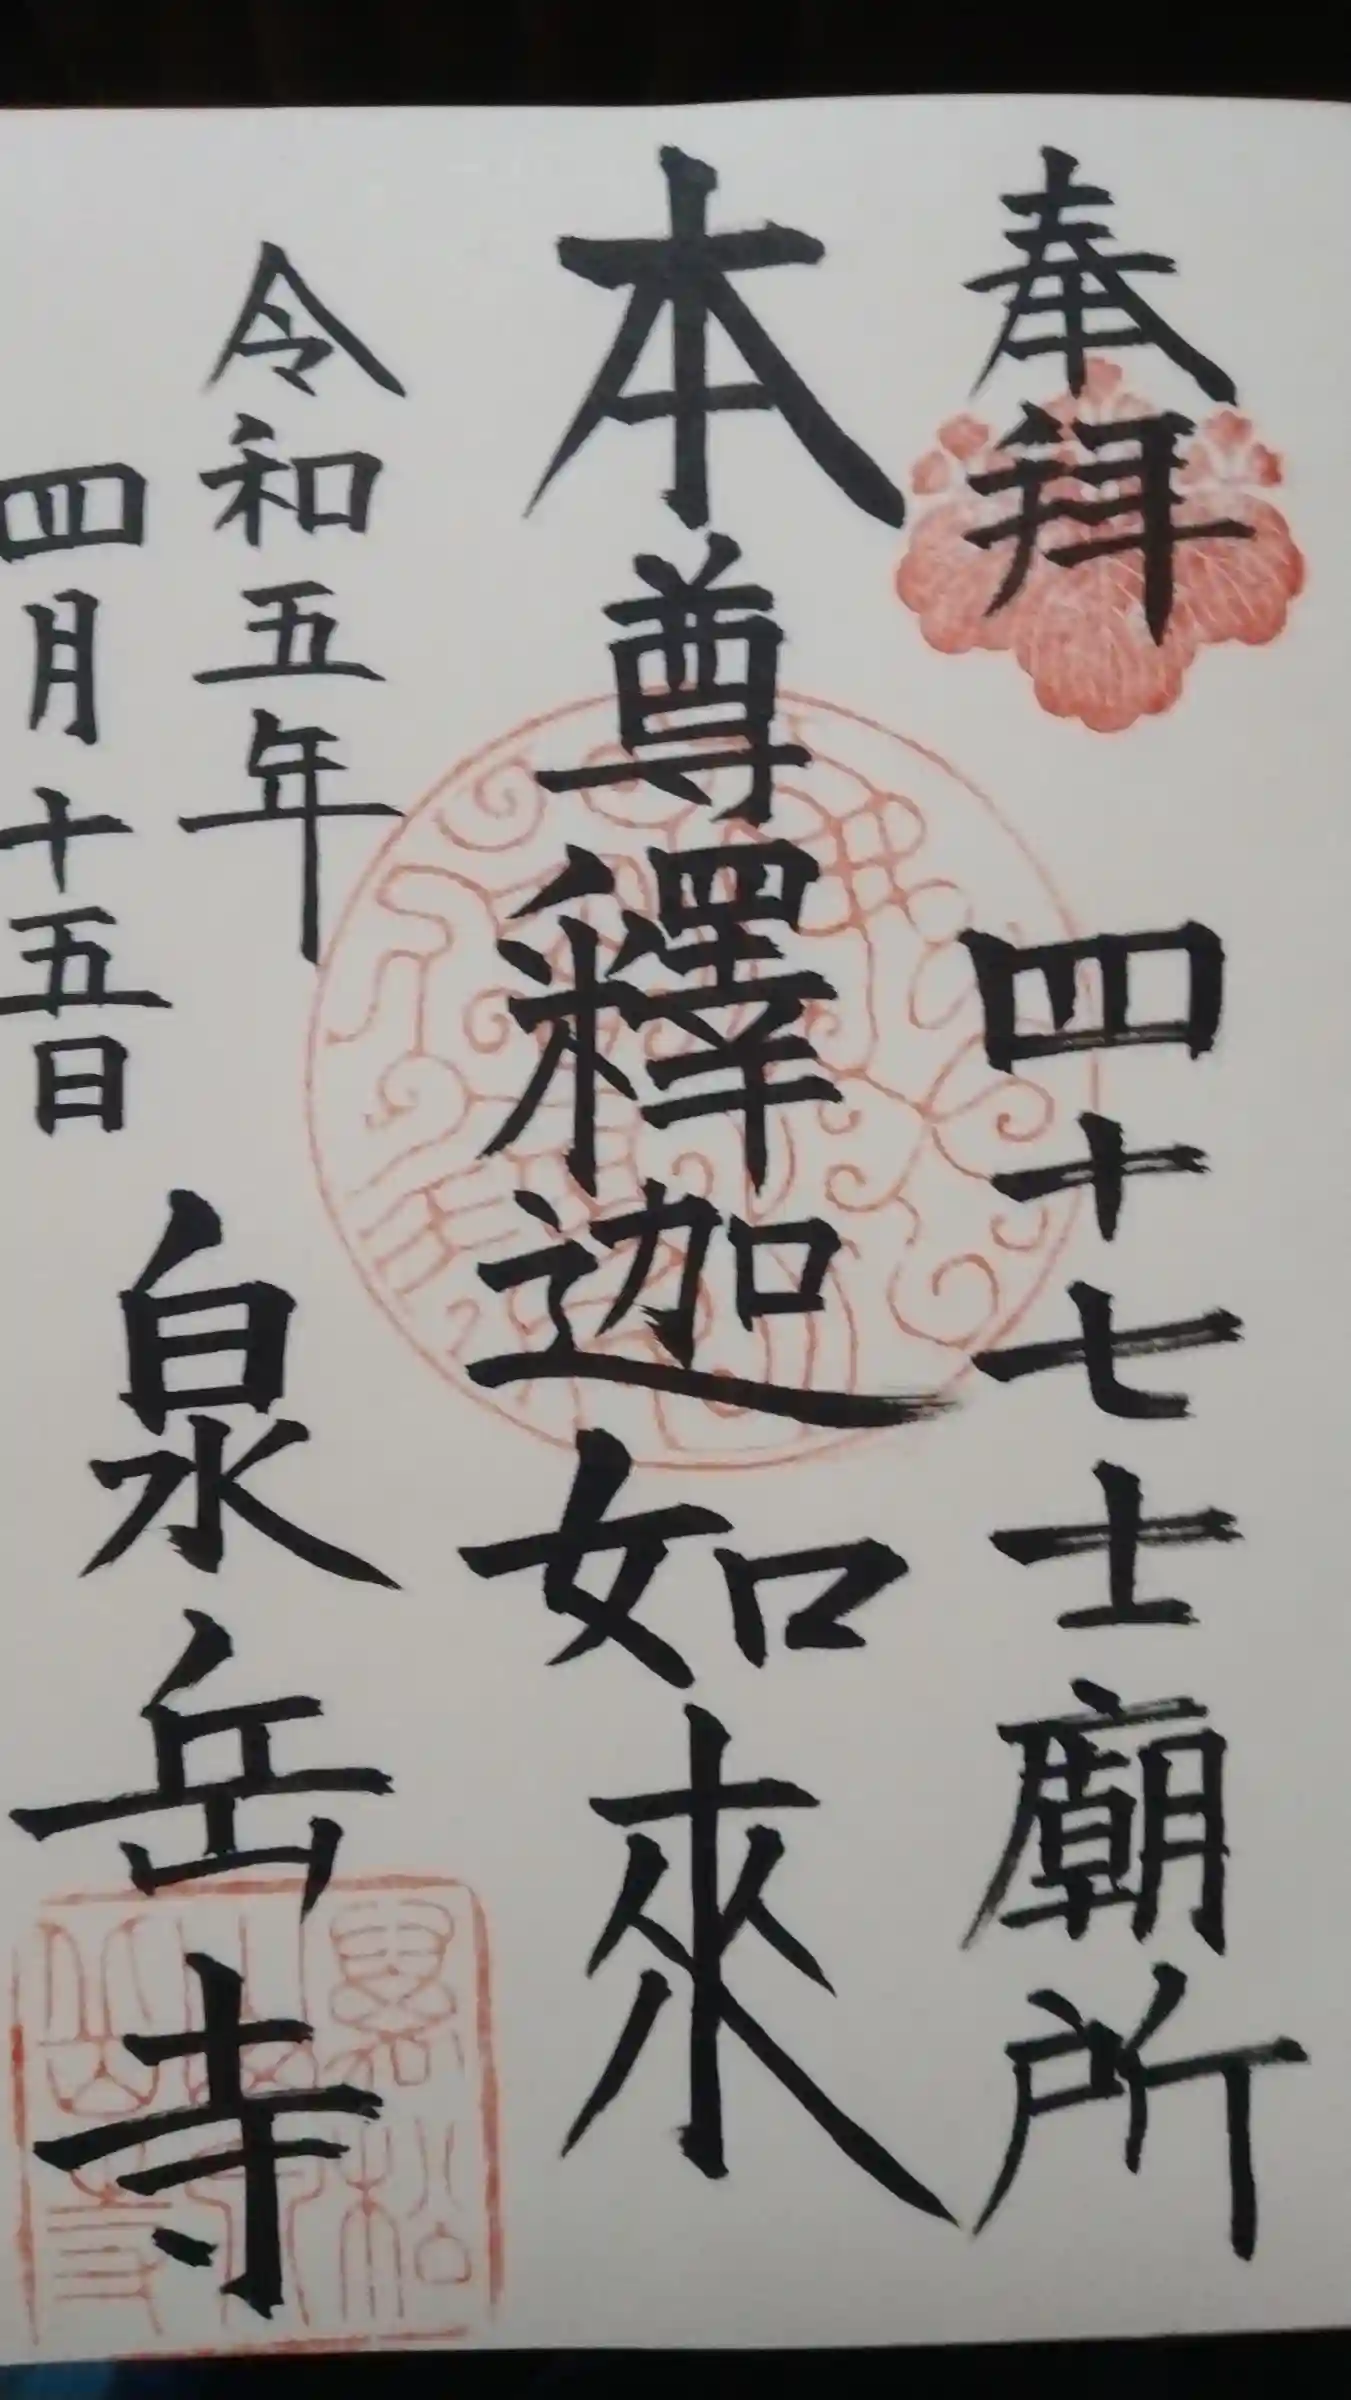 奉拝
四十七士廟所
本尊釋迦如來
令和五年
四月十五日
泉岳寺